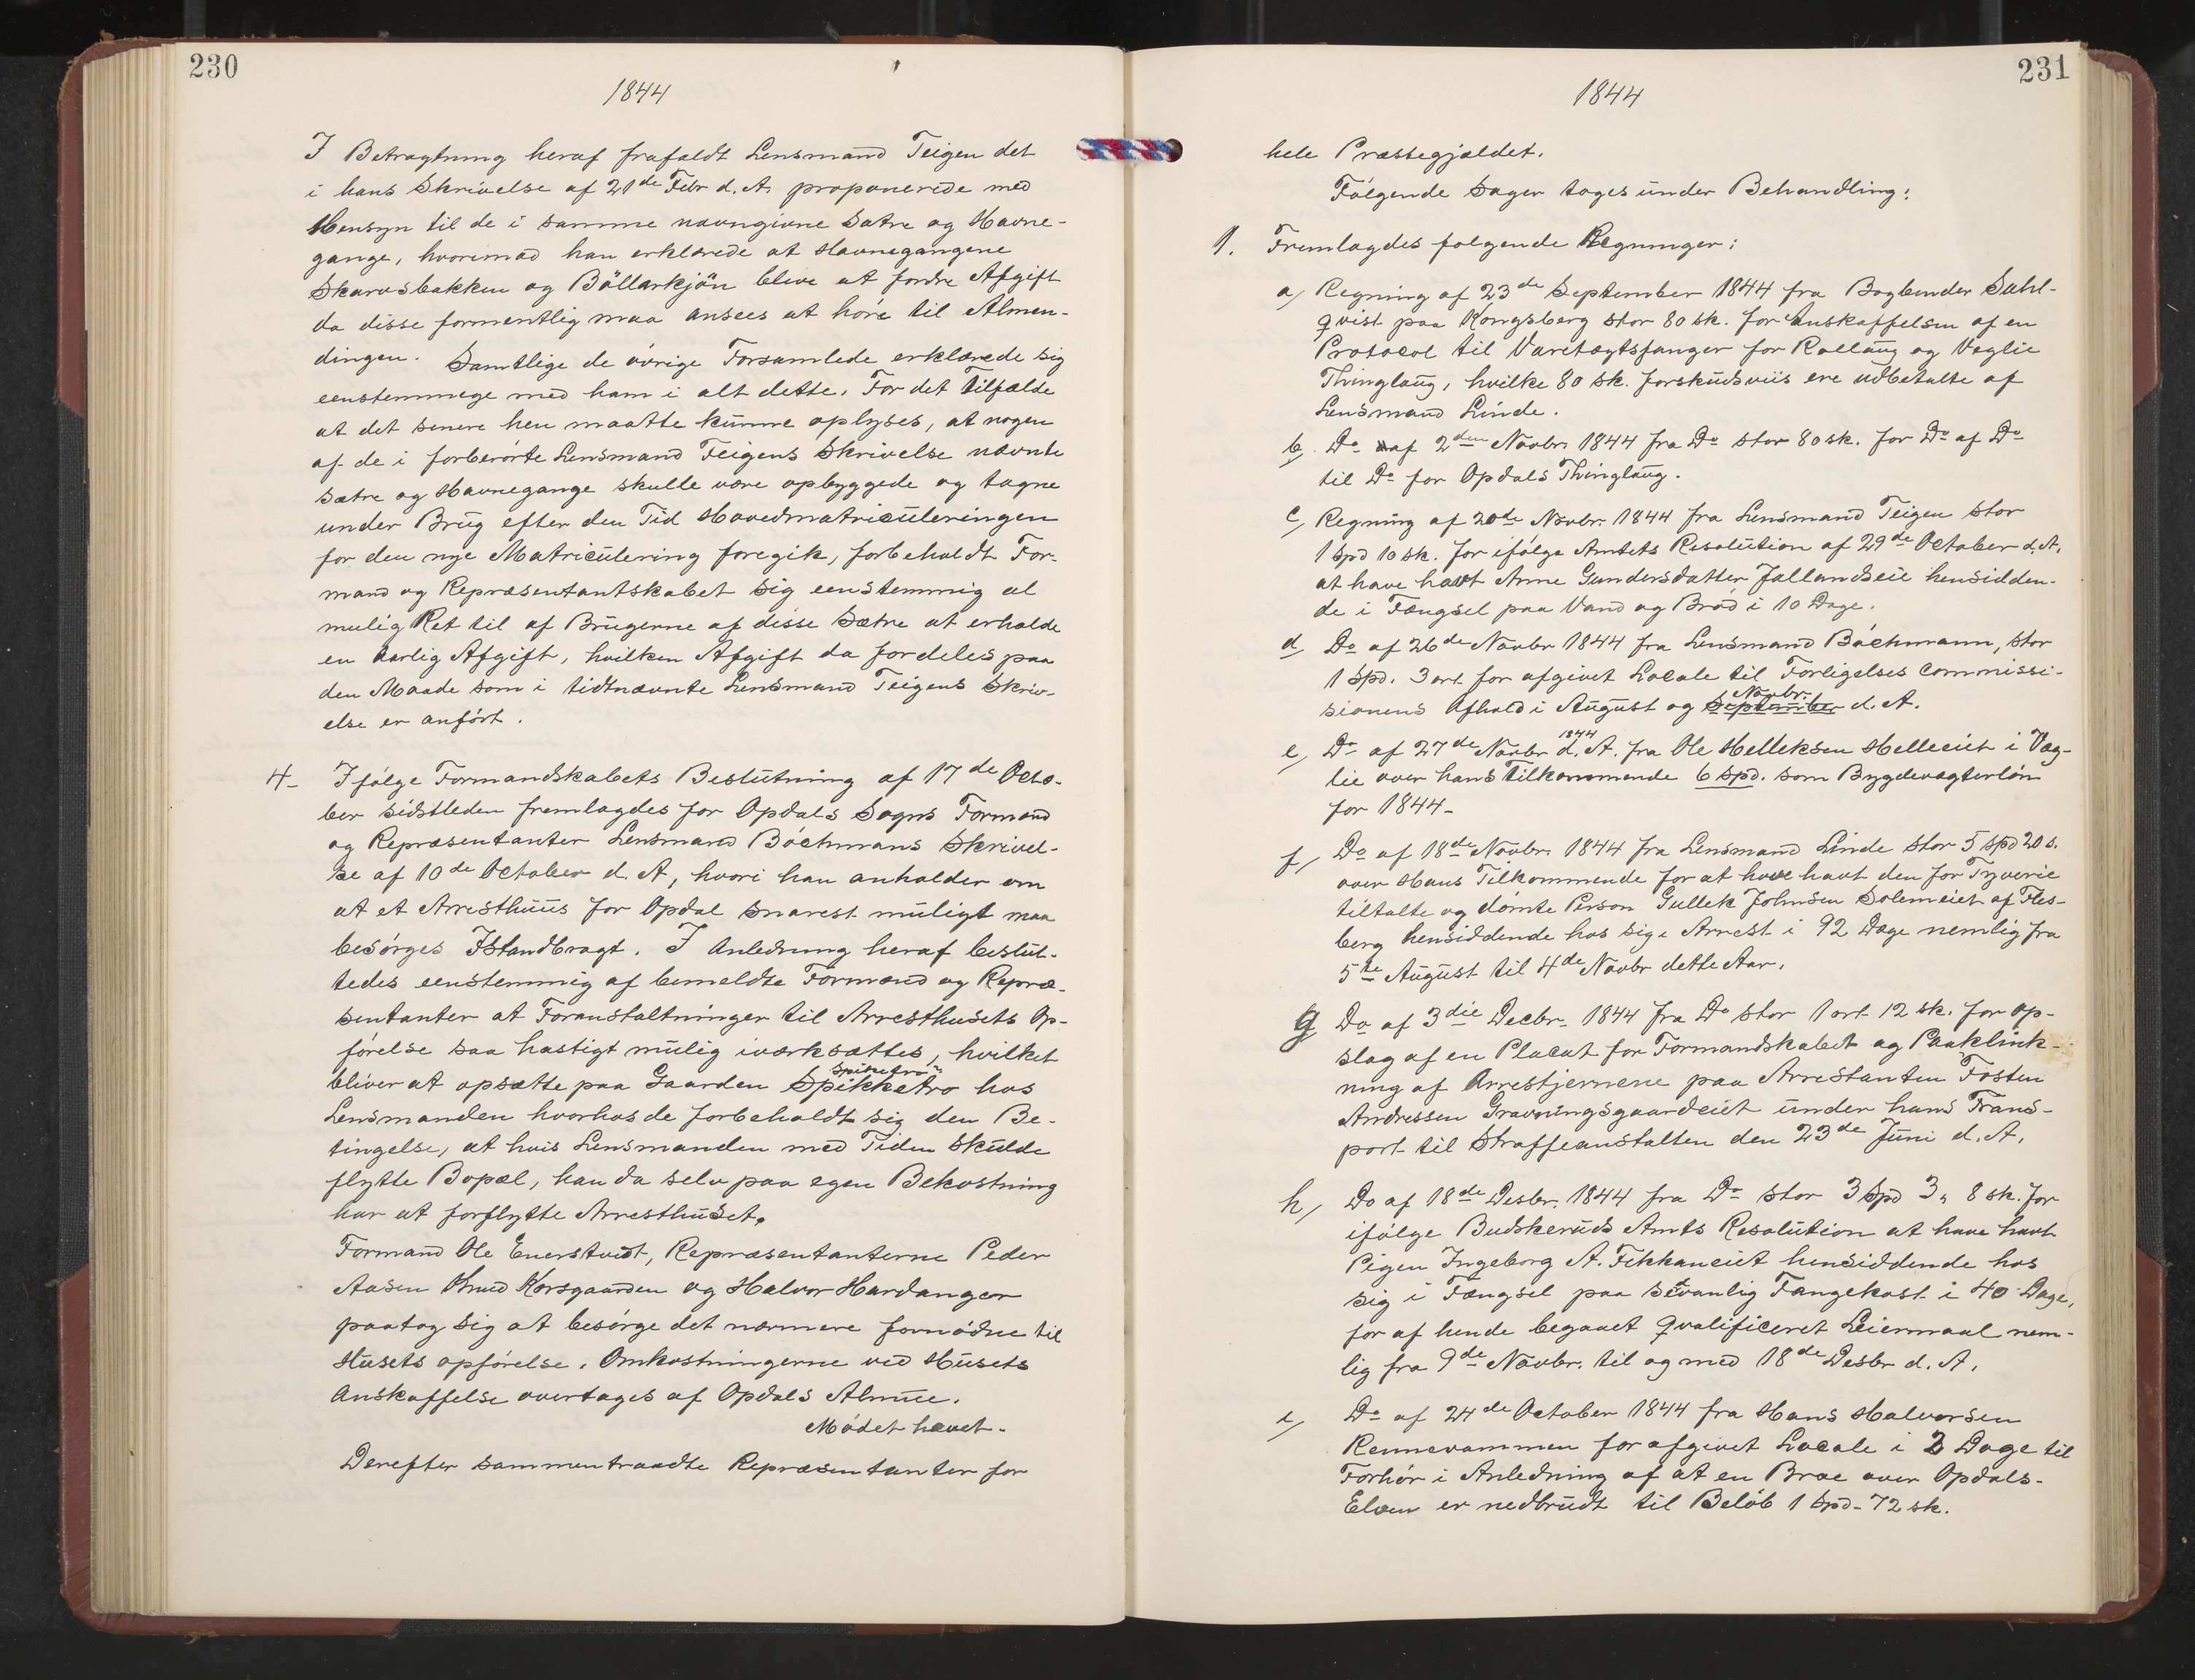 230
1844
I Betragtning heraf frafaldt Lensmand Teigen det
i hans Skrivelse af 21de Febr d. A. proponerede med
Hensyn til de i samme navngivne Sætre og Havne-
gange, hvorimod han erklærede at Havnegangene
Skarvsbakken og Böllarkjön blive at fordre Afgift
da disse formentlig maa ansees at høre til Almen-
dingen. Samtlige de øvrige Forsamlede erklærede sig
eenstemmege med ham i alt dette. For det Tilfælde
at det senere hen maatte kunne oplyses, at nogen
af de i forberørte Lensmand Teigens Skrivelse nævnte
Sætre og Havnegange skulle være opbyggede og tagne
under Brug efter den Tid Hovedmatriculeringen
for den nye Matriculering foregik, forbeholdt For-
mand og Repræsentantskabet sig eenstemmig al
mulig Ret til af Brugerne af disse Sætre at erholde
en aarlig Afgift, hvilken Afgift da fordeles paa
den Maade som i tidtnævnte Lensmand Teigens Skriv-
else er anført.
4- Ifølge Formandskabets Beslutning af 17de Octo-
ber sidstleden fremlagdes for Opdals Sogns Formænd
og Repræsentanter Lensmand Bøchmans Skrivel-
se af 10de October d. A, hvori han anholder om
at et Arresthuus for Opdal snarest muligt maa
besørges Istandbragt. I Anledning heraf beslut-
tedes eenstemmig af bemeldte Formænd og Repræ-
sentanter at Foranstaltninger til Arresthusets Op-
førelse saa hastigt mulig iværksættes, hvilket
bliver at opsætte paa Gaarden Spikketro hos
Lensmanden hvorhos de forbeholdt sig den Be-
tingelse, at hvis Lensmanden med Tiden skulde
flytte Bopæl, han da selv paa egen Bekostning
har at forflytte Arresthuset.
Formand Ole Enerstvedt, Repræsentanterne Peder
Aasen Knud Korsgaarden og Halvor Hardanger
paatog sig at besørge det nærmere fornødne til
Husets opførelse. Omkostningerne ved Husets
Anskaffelse overtages af Opdals Almue.
Mødet hævet.
Derefter sammentraadte Repræsentanter for
231
1844
hele Præstegjældet.
Følgende Sager toges under Behandling:
1. Fremlagdes følgende Regninger:
a/ Regning af 23de September 1844 fra Bogbinder Sahl-
qvist paa Kongsberg stor 80 sk. for Anskaffelsen af en
Protocol til Varetægtsfanger for Rollaug og Veglie
Thinglaug, hvilke 80 sk. forskudsviis ere udbetalte af
Lensmand Linde.
b/ Do af 2den Novbr. 1844 fra Do stor 80 sk. for Do af Do
til Do for Opdals Thinglaug.
c/ Regning af 20de Novbr. 1844 fra Lensmand Teigen stor
1 Spd 10 sk. for ifølge Amtets Resolution af 29de October d. A.
at have havt Anne Gundersdatter Jallandseie hensidden-
de i Fængsel paa Vand og Brød i 10 Dage.
d/ Do af 26de Novbr 1844 fra Lensmand Bøchmann, stor
1 Spd. 3 ort for afgivet Locale til Forligelses Commissi-
Novbr.
sionens Afhold i August og September d. A.
1844
e/ Do af 27de Novbr d. A. fra Ole Helleksen Helleeiet i Veg-
lie over hans Tilkommende 6 Spd. som Bygdevægterløn
for 1844-
f/ Do af 18de Novbr. 1844 fra Lensmand Linde stor 5 Spd 20 s.
over Hans Tilkommende for at have havt den for Tyverie
tiltalte og dømte Person Gullek Johnsen Solemeiet af Fles-
berg hensiddende hos sig i Arrest i 92 Dage nemlig fra
5te August til 4de Novbr dette Aar.
g Do af 3die Decbr. 1844 fra Do stor 1 ort 12 sk. for Op-
slag af en Placat for Formandskabet og Paaklink-
ning af Arrestjernene paa Arrestanten Tosten
Andressen Gravningsgaardeiet under hans Trans-
port til Straffeanstalten den 23de Juni d. A.
h/ Do af 18de Desbr. 1844 fra Do stor 3 Spd 3, 8 sk. for
ifølge Budskeruds Amts Resolution at have havt
Pigen Ingeborg A. Fekkaneiet hensiddende hos
sig i Fængsel paa sedvanlig Fangekost i 40 Dage,
for af hende begaaet qvalificeret Leiermaal nem-
lig fra 9de Novbr. til og med 18de Desbr d. A.
i/ Do af 24de October 1844 fra Hans Halvorsen
Rennevammen for afgivet Locale i 2 Dage til
Forhør i Anledning af at en Broe over Opdals-
Elven er nedbrudt til Beløb 1 Spd - 72 sk.